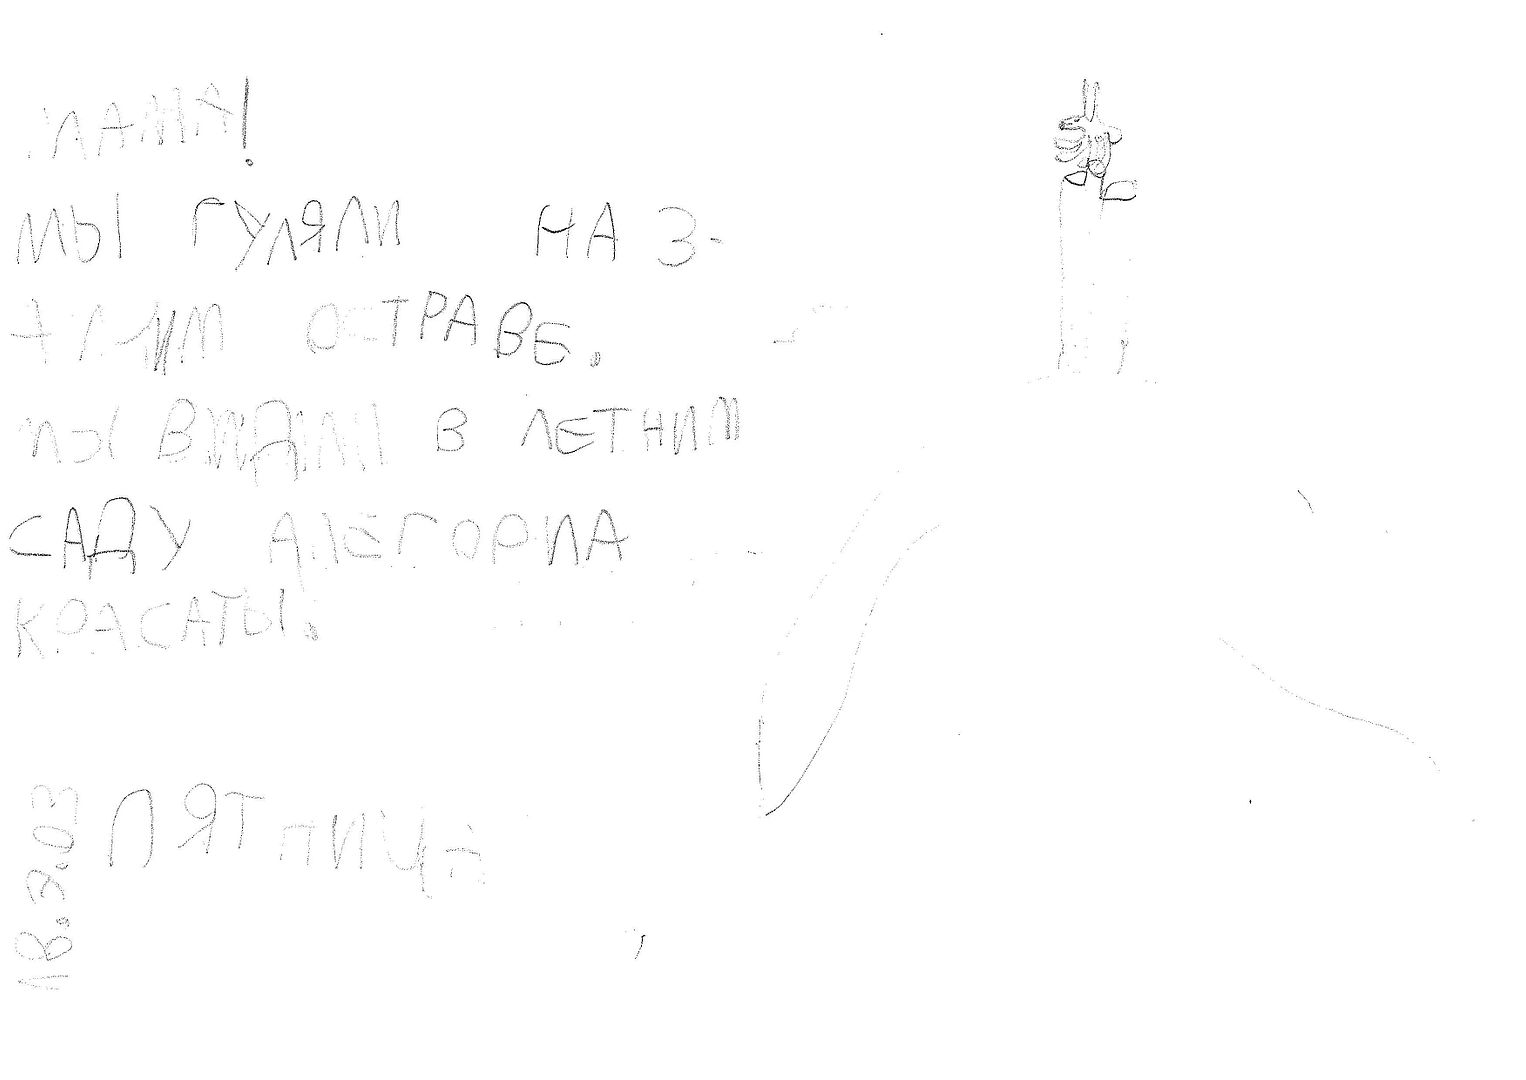 МАМА!
МЫ ГУЛЯЛИ НА З-
ОСТРАВЕ.
МЫ ВИДИЛИ В ЛЕТНИМ
САДУ АЛЕГОРИЯ
КРАСАТЫ.
ПЯТНИЦА
18.7.03